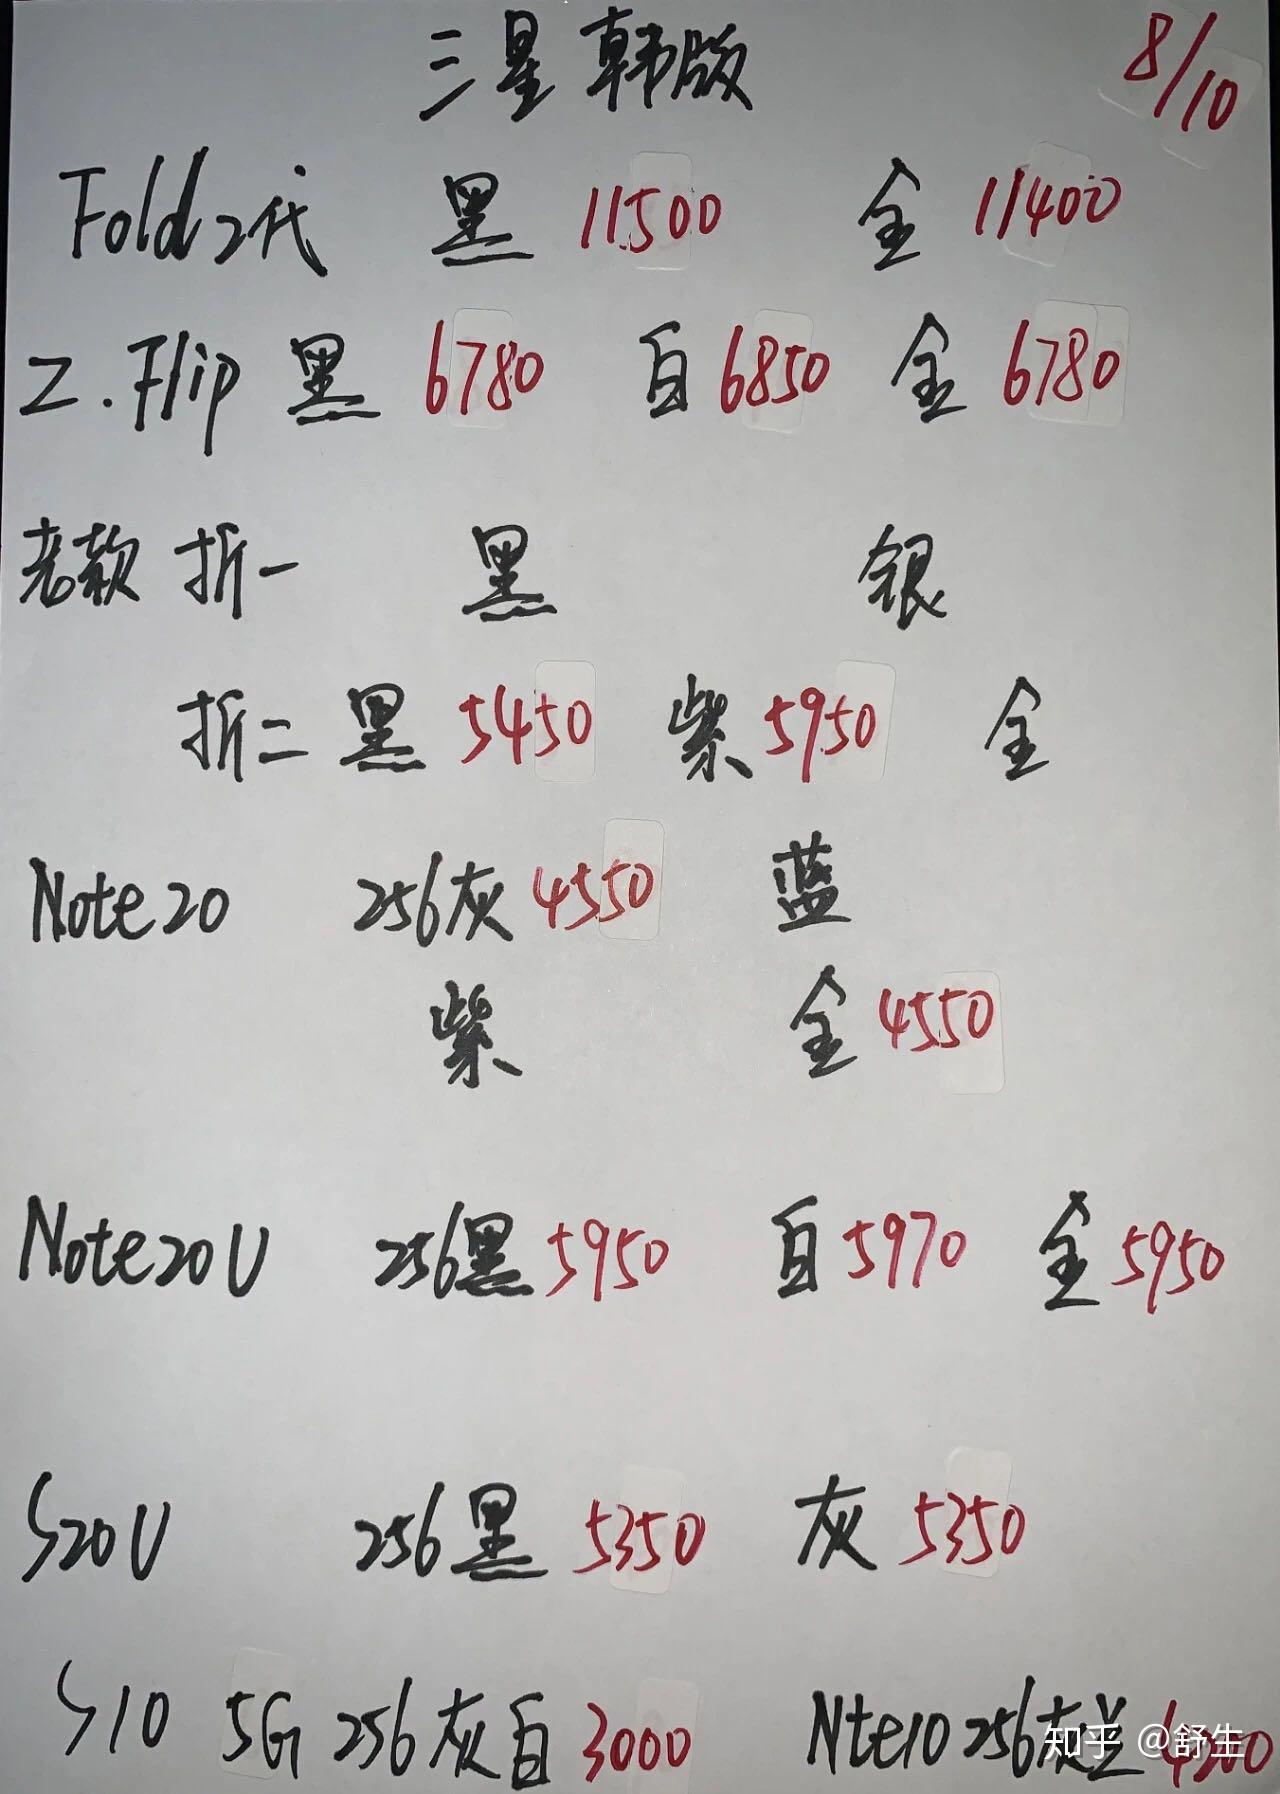 三星 韩版 8/10
Fold 2代 黑 11500 金 11400
Z.Flip 黑 6780 白 6850 金 6780
老款 折一 黑 银
折二 黑 5450 紫 5950 金
Note20 256灰 4550 蓝
紫 金 4550
Note20U 256黑 5950 白 5970 金 5950
S20U 256黑 5350 灰 5350
S10 5G 256灰白 3000 Nte10 256灰兰
知乎 @舒生